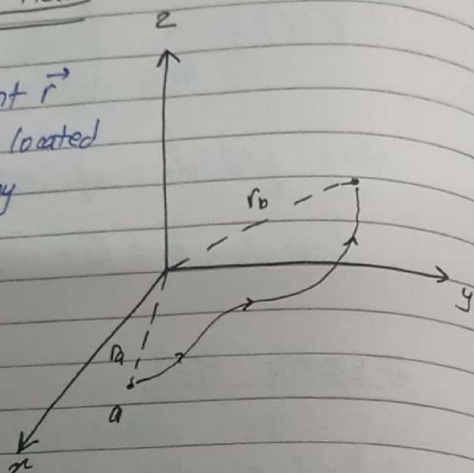 z
nt r⃗
located
y
r_b
y
r_a
a
x